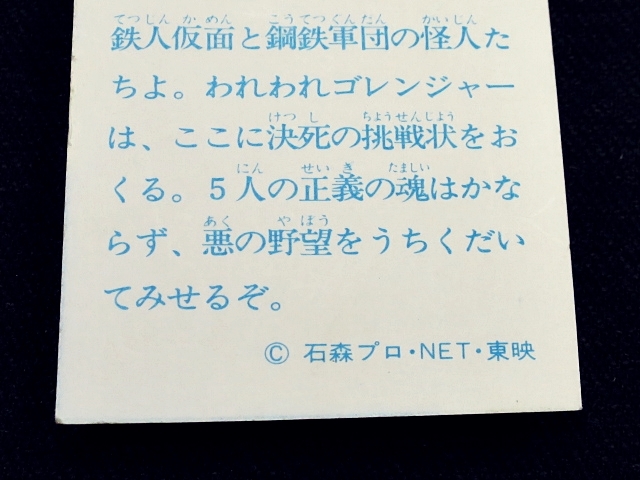 てつじんかめん こうてつぐんだん かいじん
鉄人仮面と鋼鉄軍団の怪人た
ちよ。われわれゴレンジャー
けつし ちょうせんじょう
は、ここに決死の挑戦状をお
にん せいぎ たましい
くる。5人の正義の魂はかな
あく やぼう
らず、悪の野望をうちくだい
てみせるぞ。
© 石森プロ・NET・東映